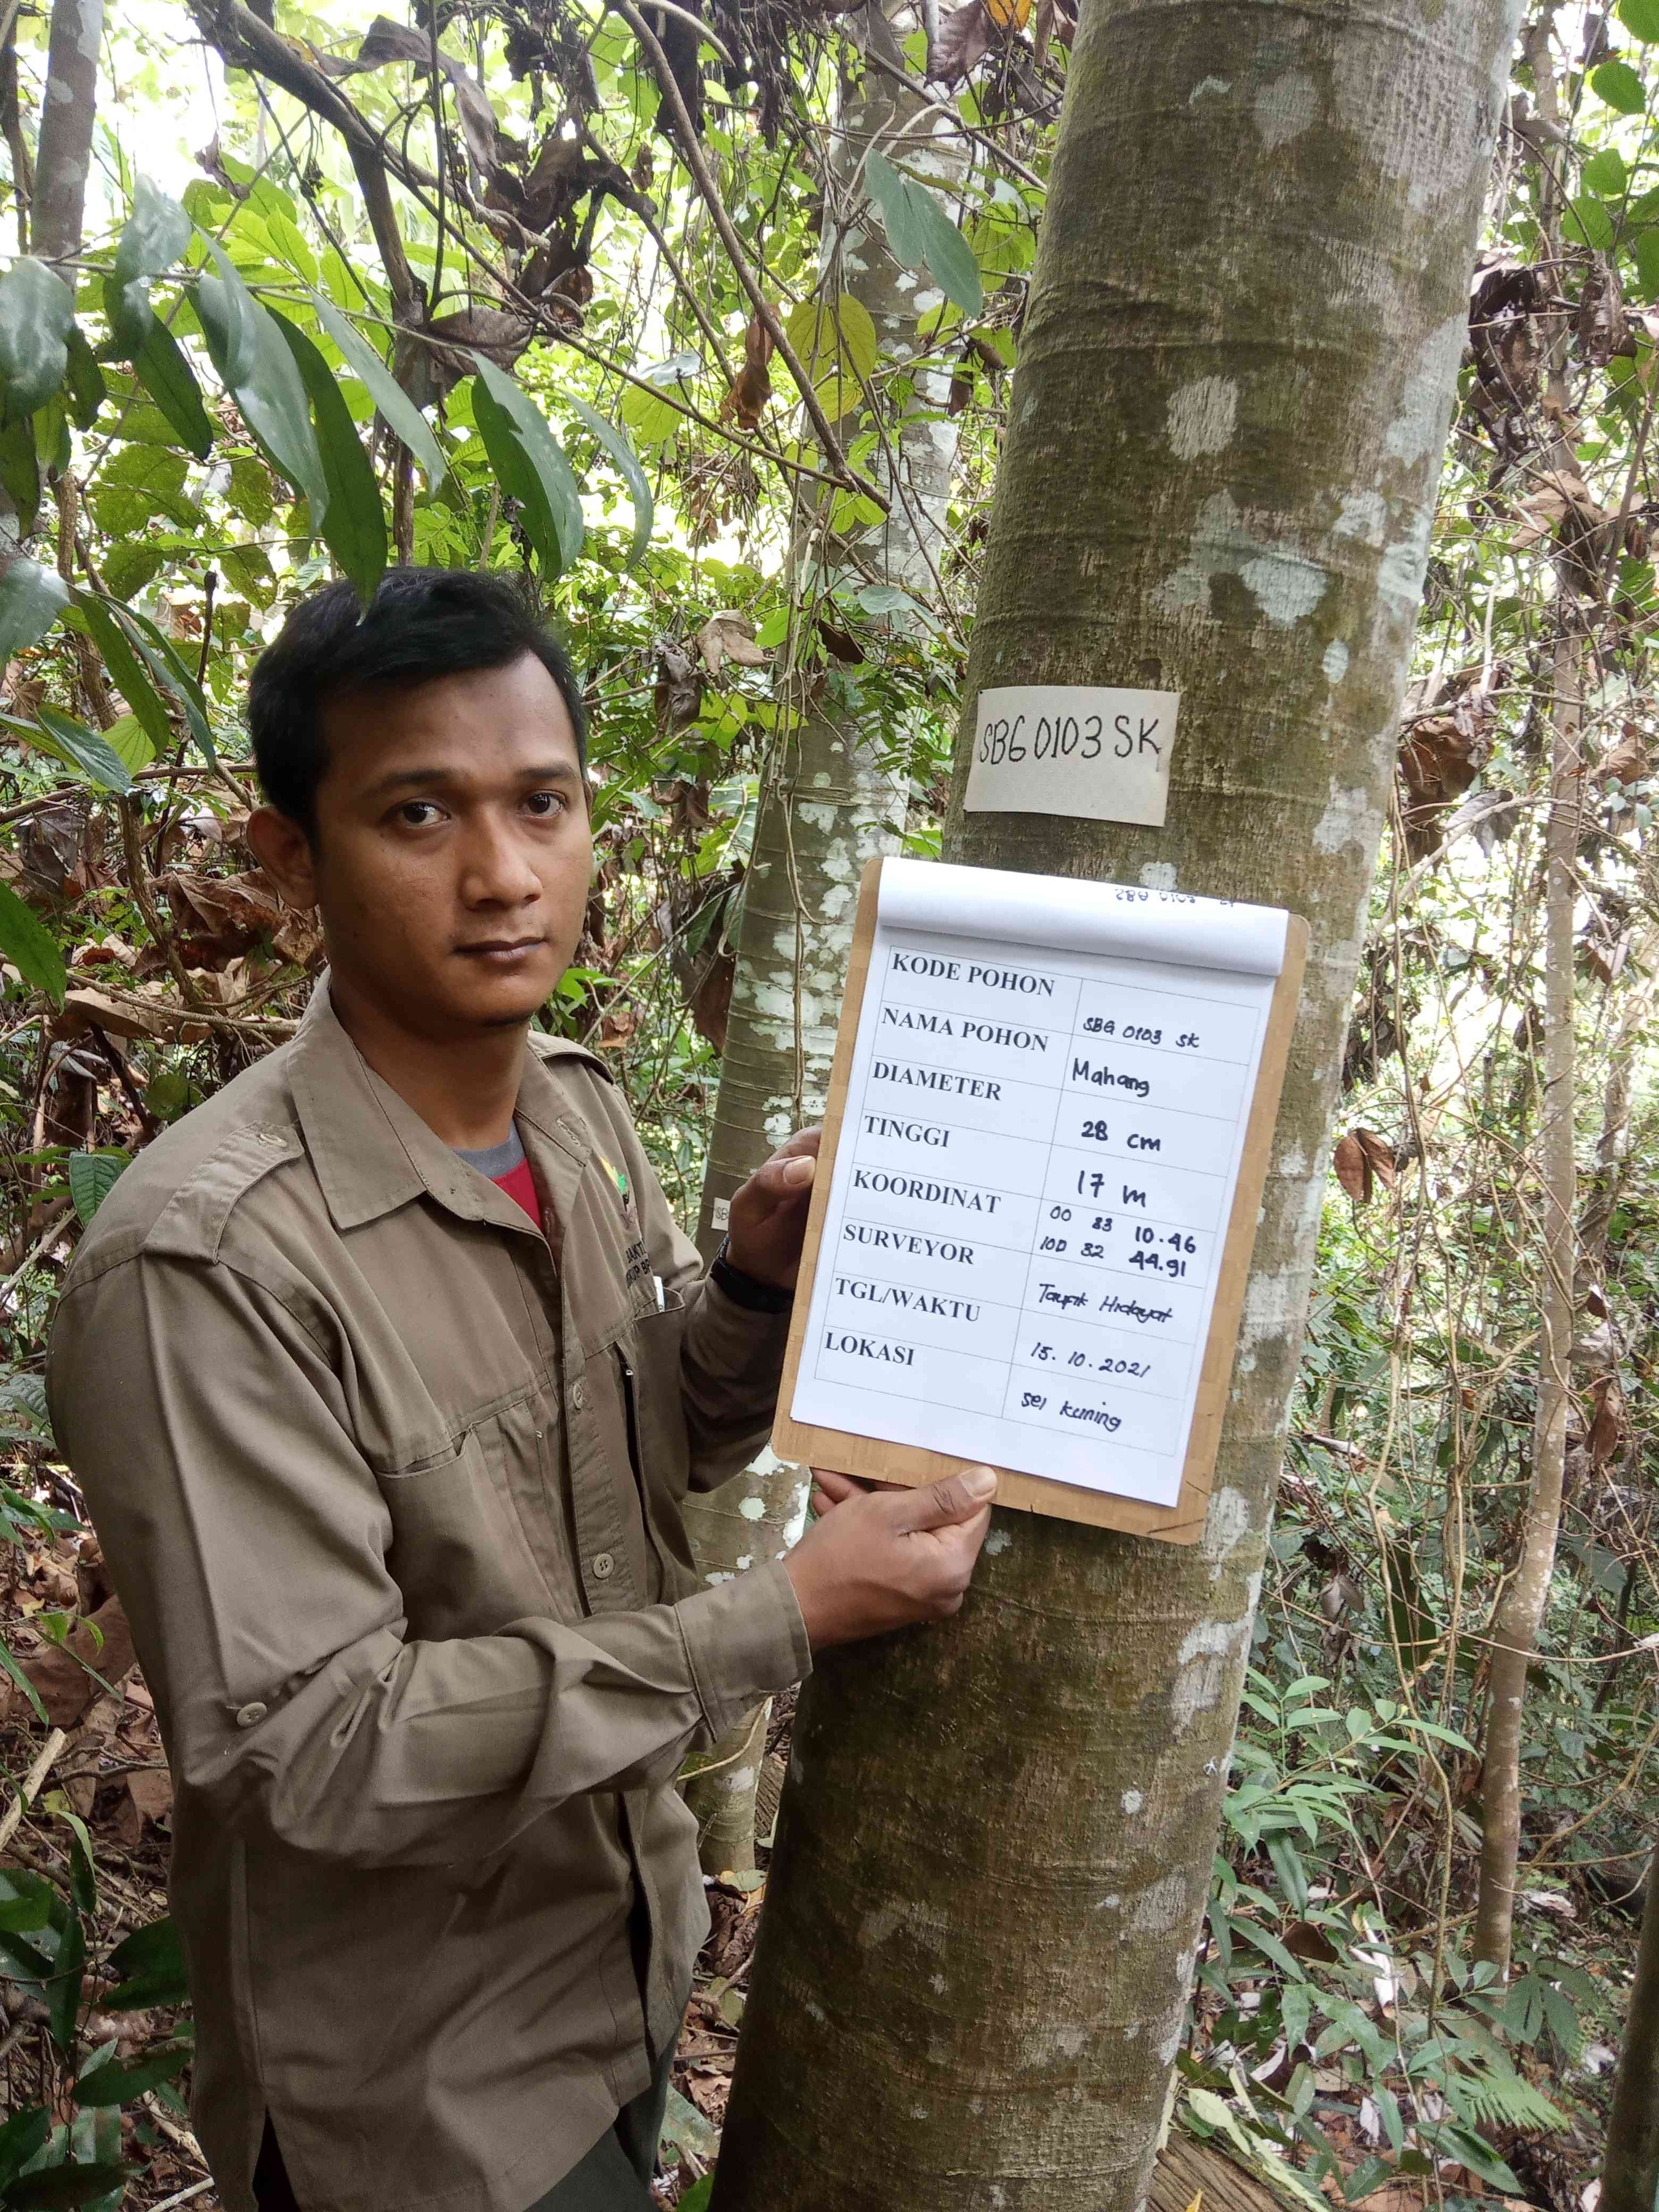 SBG 0103 SK
KODE POHON SBG 0103 SK
NAMA POHON Mahang
DIAMETER 28 cm
TINGGI 17 m
KOORDINAT 00 33 10.46
100 32 44.91
SURVEYOR Taufik Hidayat
TGL/WAKTU 15.10.2021
LOKASI sei kuning